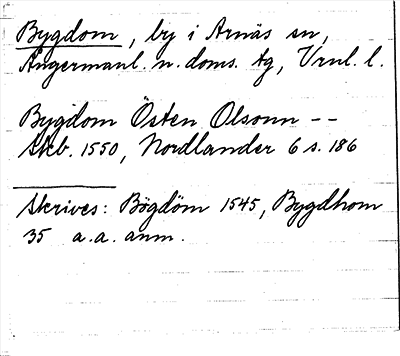 Bygdom, by i Arnäs sn,
Ångermanl. n. doms. tg, Vrnl. l.
Bygdom Östen Olsonn --
Skb. 1550, Nordlander 6 s. 186
Skrives: Bögdöm 1545, Bygdhom
35 a.a. anm.